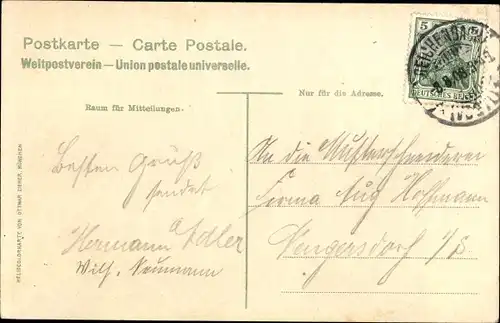 Postkarte — Carte Postale.
Weltpostverein — Union postale universelle.
5
DEUTSCHES REICH
Nur für die Adresse.
Raum für Mitteilungen.
Besten Gruß
sendet
Hermann Adler
Wilh. Neumann
An die Musterschneiderei
Firma Aug Hoffmann
Neugersdorf i/S.
HELIOCOLORKARTE VON OTTMAR ZIEHER, MÜNCHEN